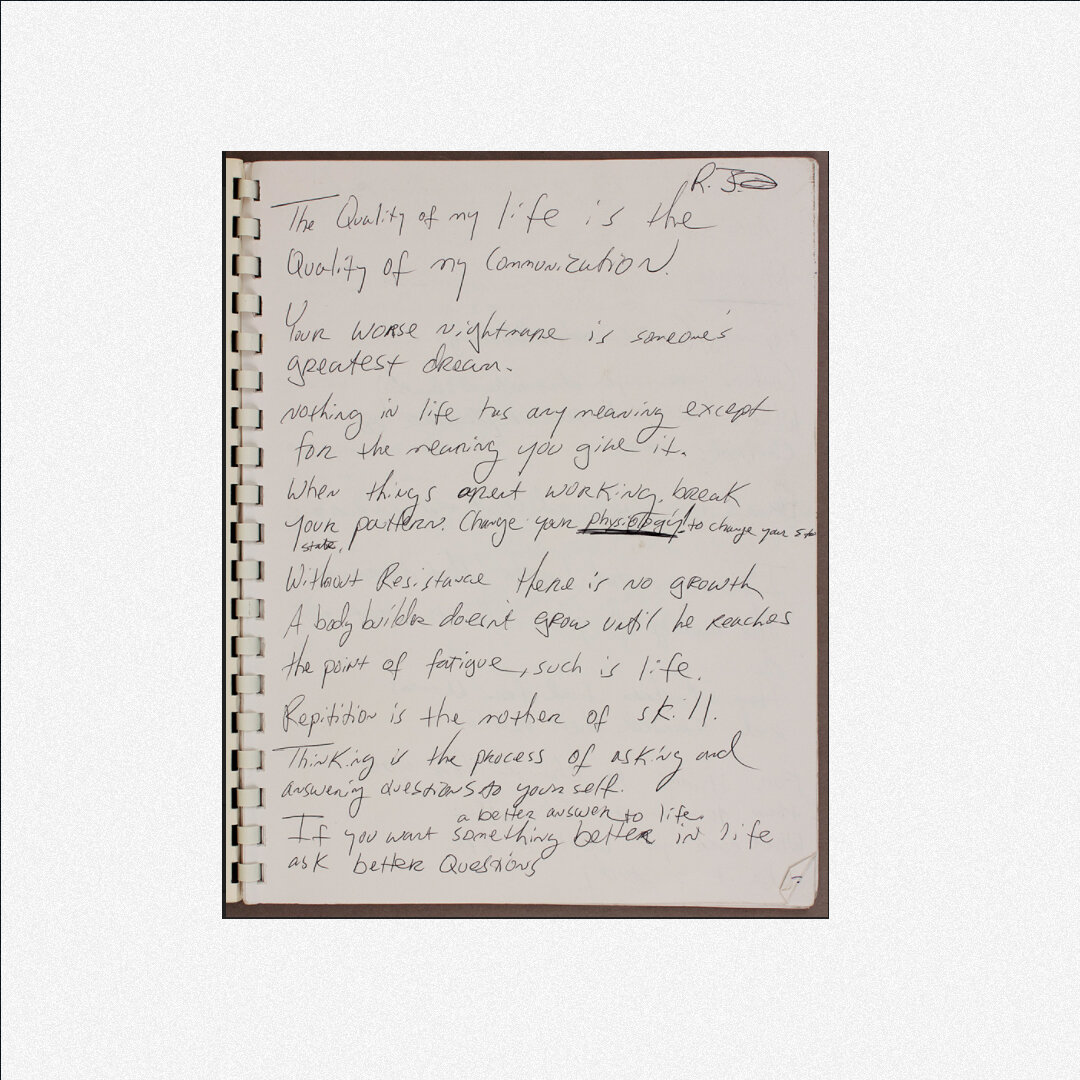 R. J.
The Quality of my life is the
Quality of my Communization.
Your worse nightmare is someone's
greatest dream.
nothing in life has any meaning except
for the meaning you give it.
When things arent working, break
your pattern. Change your physiology! to change your sta
state,
Without Resistance there is no growth
A body builder doesnt grow until he reaches
the point of fatigue, such is life.
Repitition is the mother of skill.
Thinking is the process of asking and
answering questions to yourself.
a better answer to life.
If you want something better in life
ask better Questions